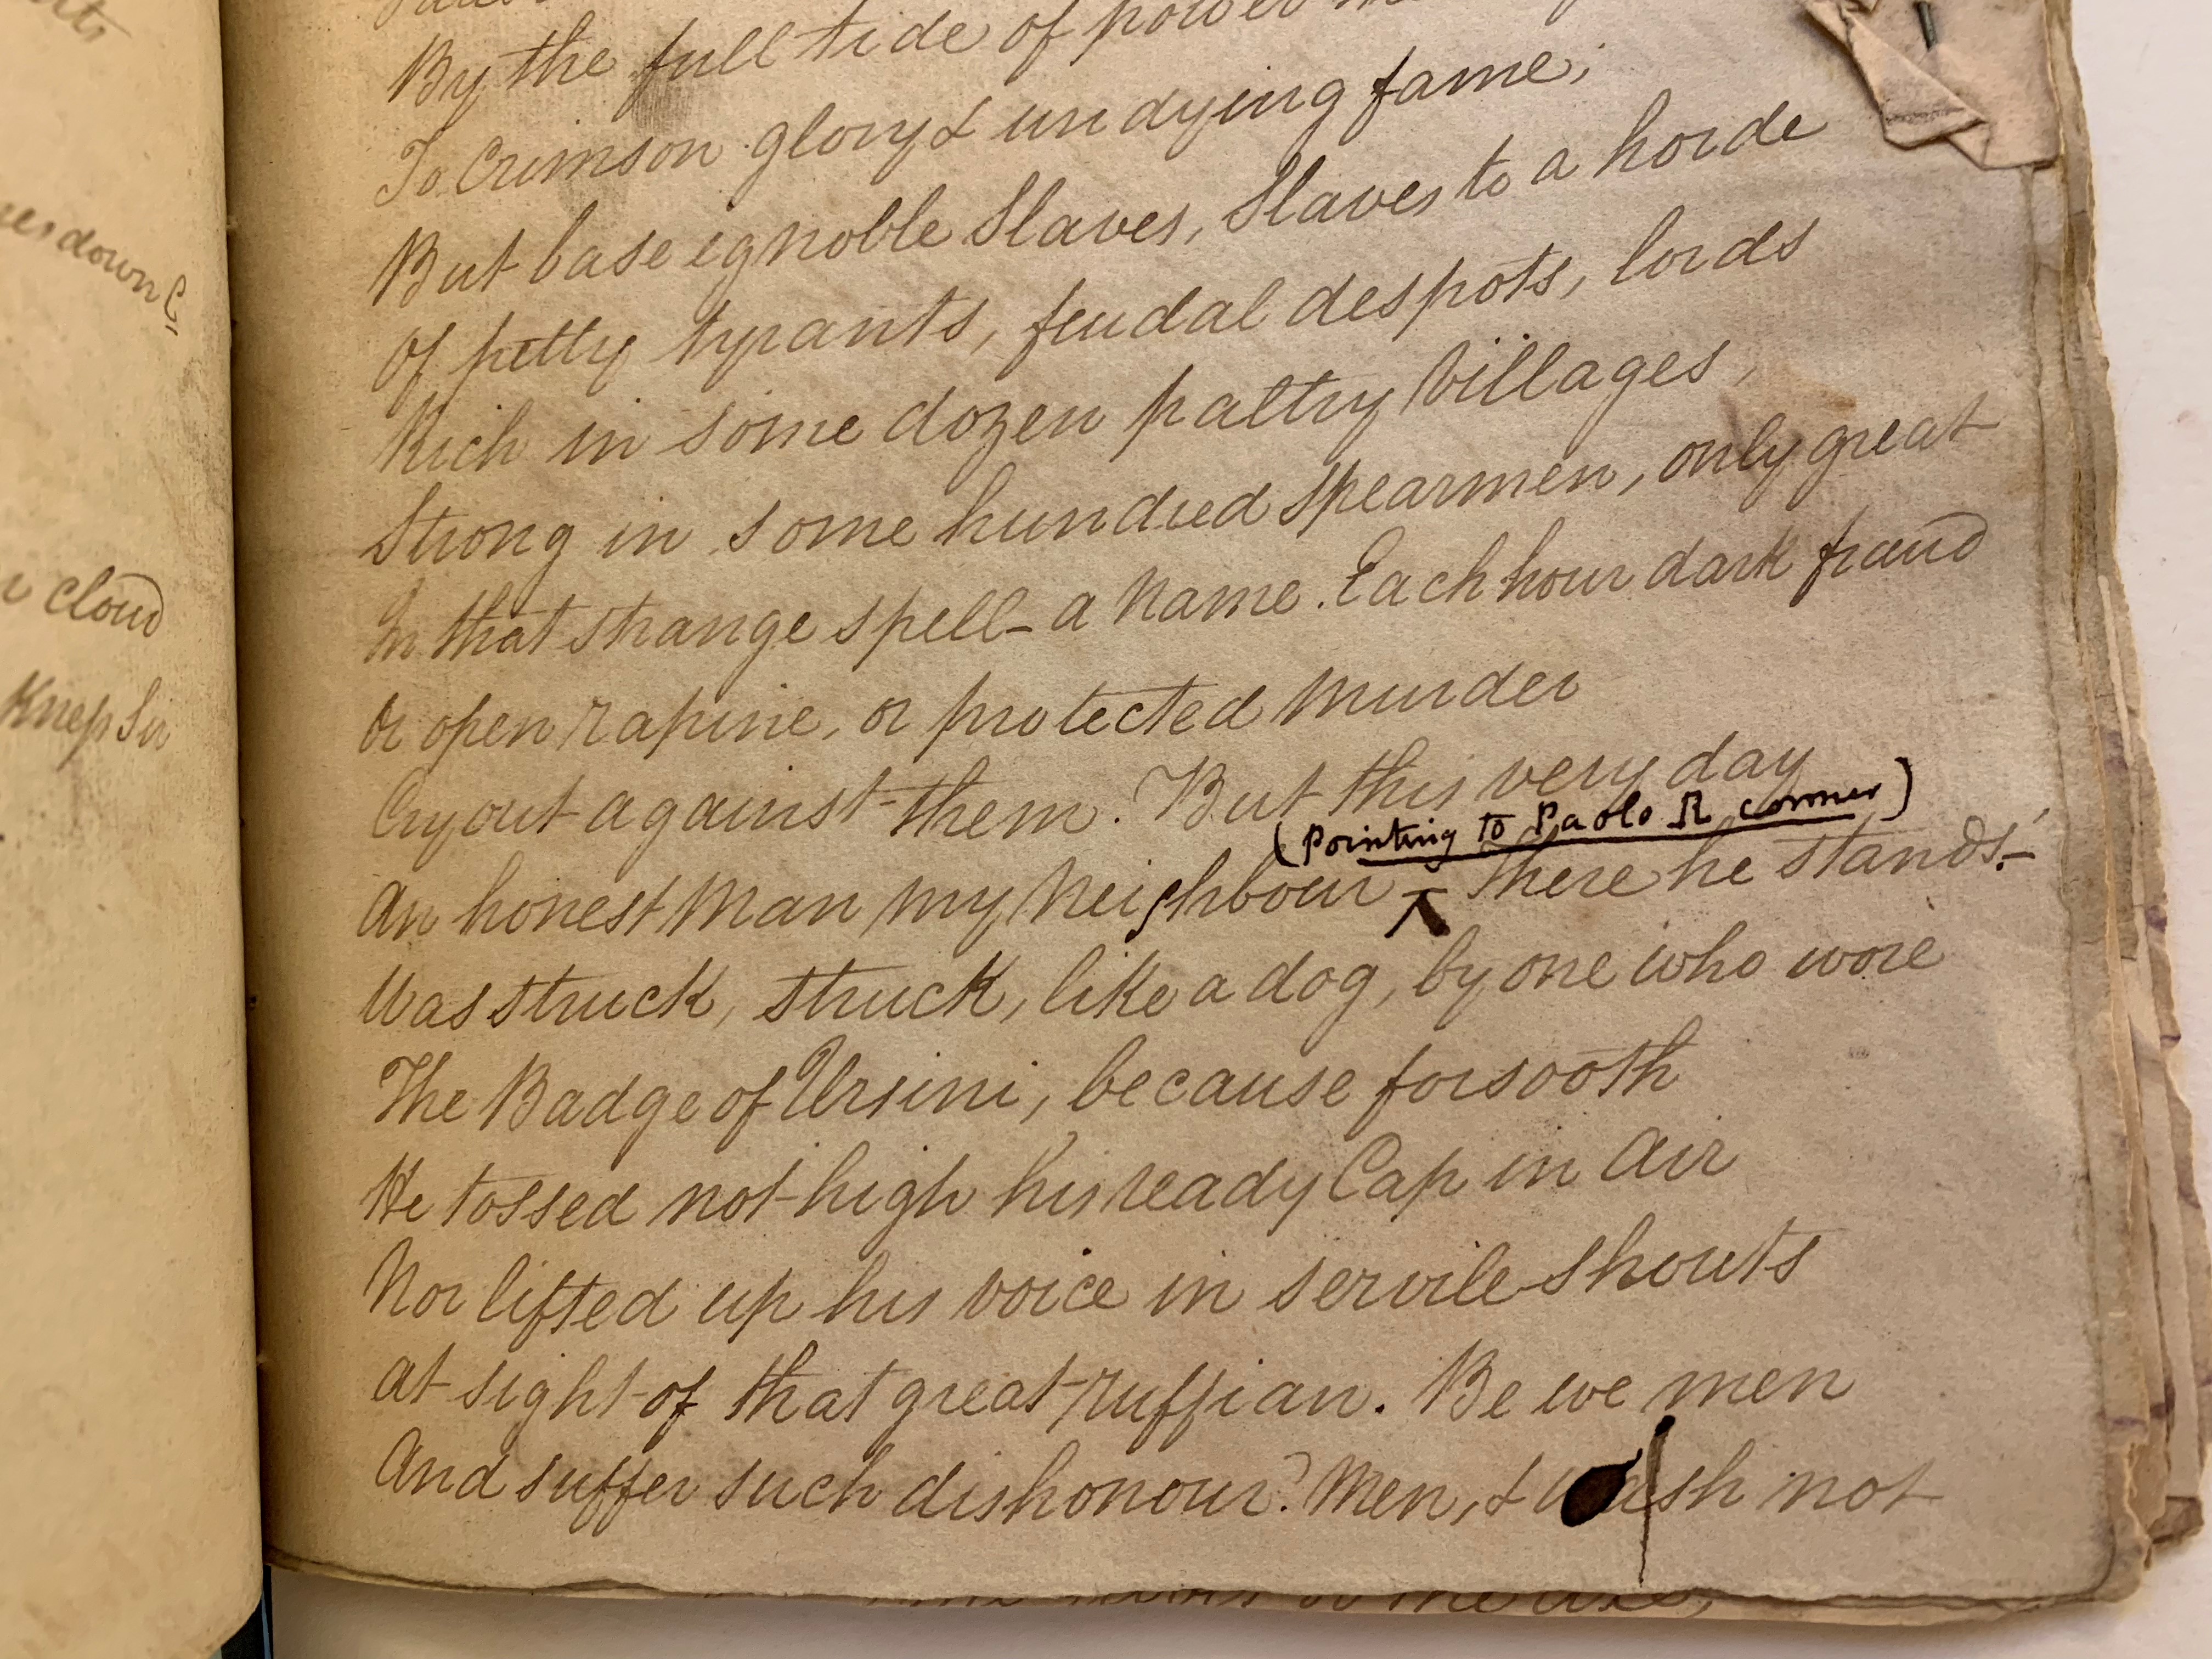 rt,
down C,
cloud
Knep Sir
By the full tide of power
To Crimson glory & undying fame;
But base ignoble Slaves, Slaves to a horde
Of petty tyrants, feudal despots, lords
Rich in some dozen paltry Villages,
Strong in some hundred spearmen, only great
In that strange spell _ a Name. Each hour dark fraud
Or open rapine, or protected Murder
Cry out against them. But this very day
(Pointing to Paolo R corner)
An honest Man my Neighbour ‸ _ There he stands! _
Was struck, struck, like a dog, by one who wore
The Badge of Ursini, because forsooth
He tossed not high his ready Cap in Air
Nor lifted up his voice in servile shouts
At sight of that great ruffian. Be we men
And suffer such dishonour? Men, & wash not